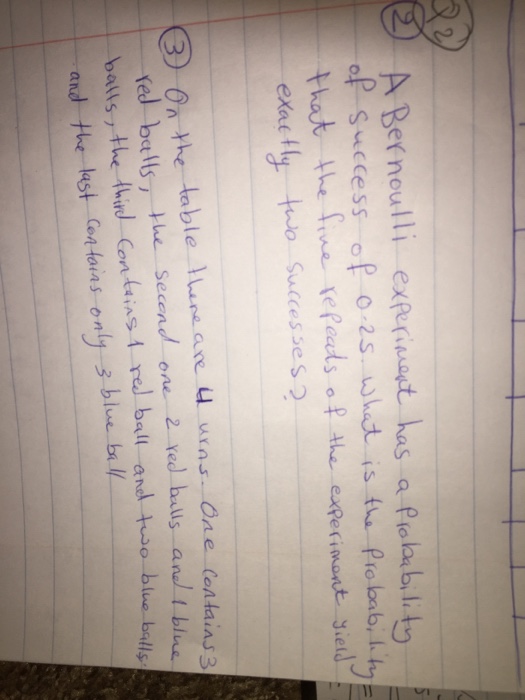 Q2
2 A Bernoulli experiment has a Probability
of success of 0.25. What is the Probability
that the five repeads of the experiment yield
exactly two successes?
3 On the table there are 4 urns. One contains 3
red balls, the second one 2 red balls and 1 blue
balls, the third Contains 1 red ball and two blue balls.
and the last Contains only 3 blue ball